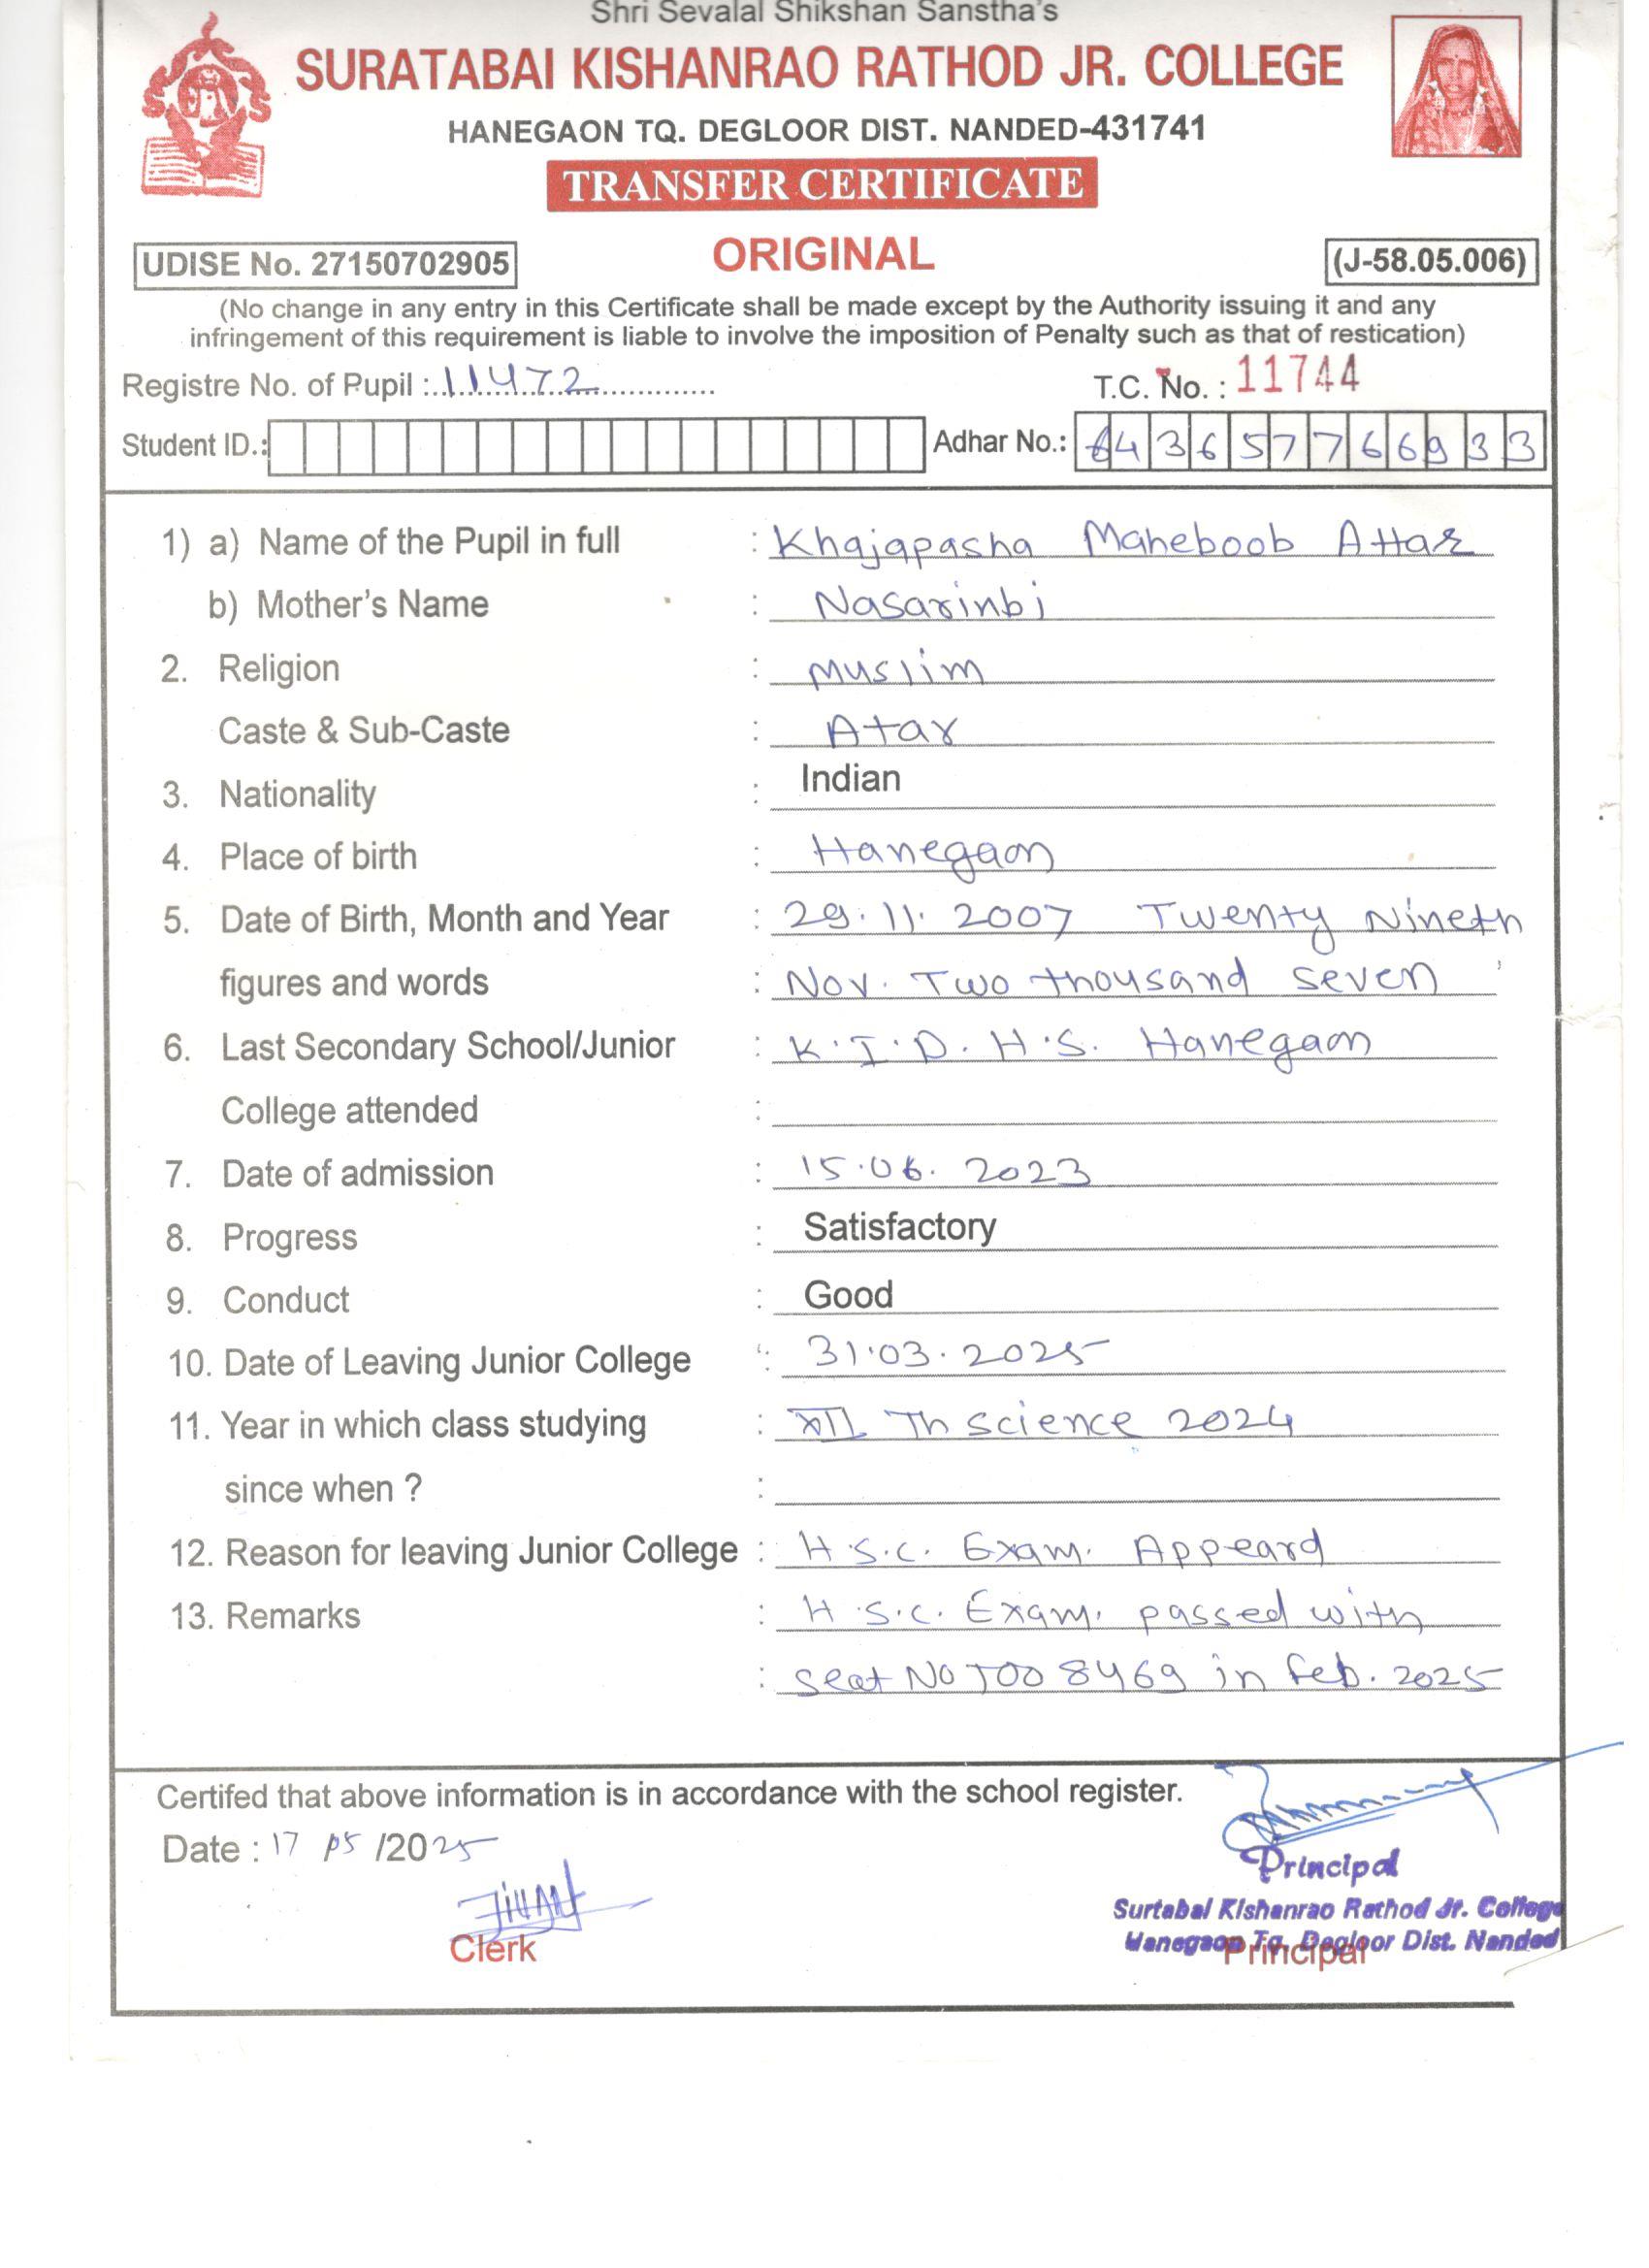 Shri Sevalal Shikshan Sanstha's
SURATABAI KISHANRAO RATHOD JR. COLLEGE
HANEGAON TQ. DEGLOOR DIST. NANDED-431741
TRANSFER CERTIFICATE
UDISE No. 27150702905 ORIGINAL (J-58.05.006)
(No change in any entry in this Certificate shall be made except by the Authority issuing it and any
infringement of this requirement is liable to involve the imposition of Penalty such as that of restication)
Registre No. of Pupil : 11472 T.C. No. : 11744
Student ID.: Adhar No.: 643657766933
1) a) Name of the Pupil in full : Khajapasha Maheboob Attar
b) Mother's Name : Nasarinbi
2. Religion : Muslim
Caste & Sub-Caste : Atar
3. Nationality : Indian
4. Place of birth : Hanegaon
5. Date of Birth, Month and Year : 29.11.2007 Twenty Nineth
figures and words : Nov. Two thousand seven
6. Last Secondary School/Junior : K.I.D.H.S. Hanegaon
College attended :
7. Date of admission : 15.06.2023
8. Progress : Satisfactory
9. Conduct : Good
10. Date of Leaving Junior College : 31.03.2025
11. Year in which class studying : XII Th Science 2024
since when ? :
12. Reason for leaving Junior College : H.S.C. Exam. Appeard
13. Remarks : H.S.C. Exam. passed with
: Seat No T008469 in Feb. 2025
Certifed that above information is in accordance with the school register.
Date : 17 05 /2025
Principal
Surtabai Kishanrao Rathod Jr. College
Hanegaon Tq. Degloor Dist. Nanded
Clerk Principal